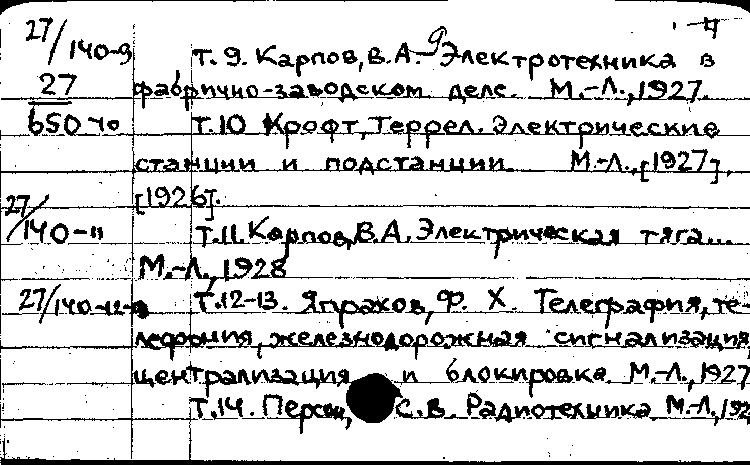 27/140-9
- 4
Т. 9. Карпов, В. А. Электротехника в
27
фабрично-заводском деле. М.-Л., 1927.
650 10
Т. 10 Крофт, Террел. Электрические
станции и подстанции. М.-Л., [1927],
[1926].
27/140-11
Т. 11. Карпов, В. А. Электрическая тяга...
М.-Л., 1928
27/140-12-
Т. 12-13. Япрахов, Ф. Х. Телеграфия, те-
лефония, железнодорожная сигнализация,
централизация и блокировка. М.-Л., 1927
Т. 14. С. В. Радиотехника. М.-Л., 192